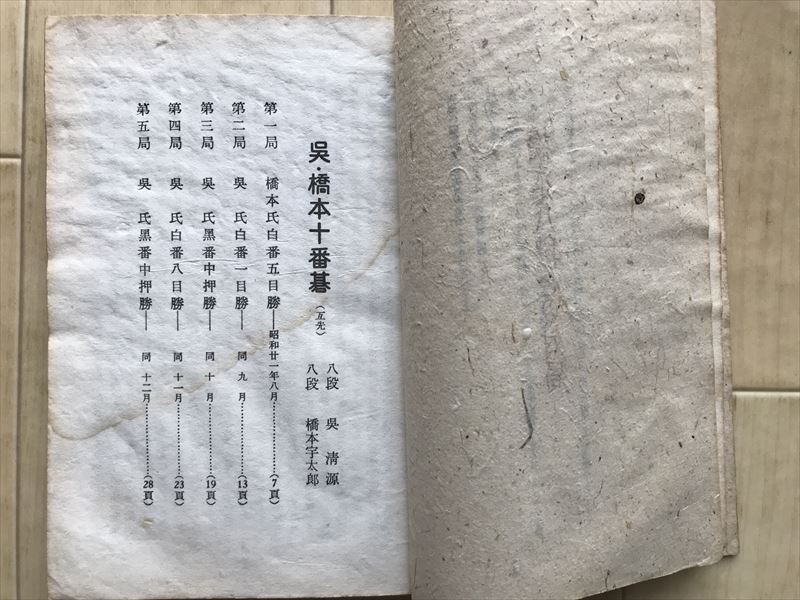 吳・橋本十番碁（互先）
八段 吳 清源
八段 橋本宇太郎
第一局 橋本氏白番五目勝――昭和廿一年八月…………(7頁)
第二局 吳 氏白番一目勝―― 同 九 月…………(13頁)
第三局 吳 氏黑番中押勝―― 同 十 月…………(19頁)
第四局 吳 氏白番八目勝―― 同 十一月…………(23頁)
第五局 吳 氏黑番中押勝―― 同 十二月…………(28頁)